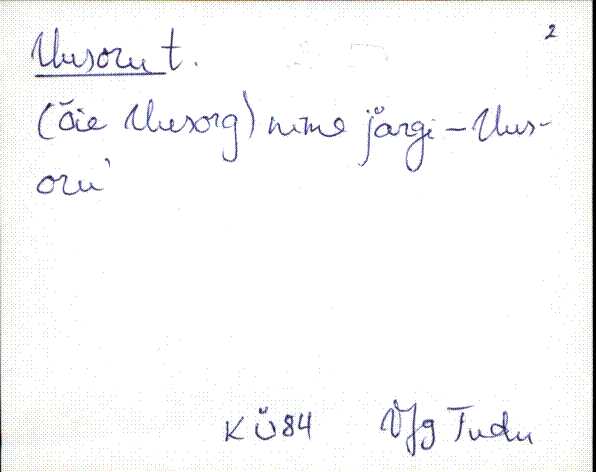 2
Uusoru t.
(õie Uusorg) nime järgi – Uus-
oru'
KÜ84 VJg Tudu